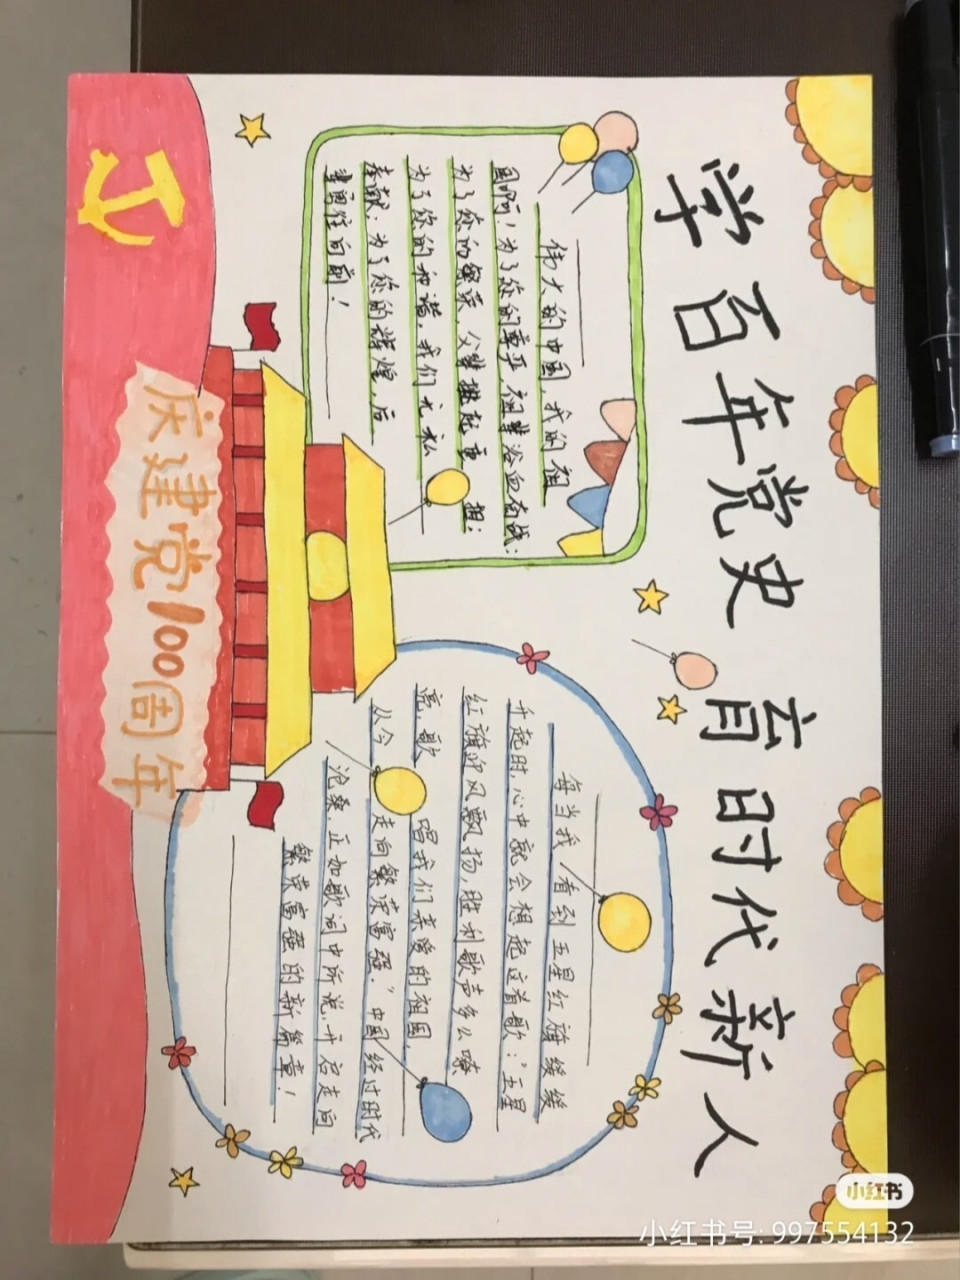 学百年党史 育时代新人
伟大的中国,我的祖
国啊!为了您的尊严,祖辈浴血奋战;
为了您的繁荣,父辈挑起重担;
为了您的和谐,我们无私
奉献;为了您的辉煌,后
辈勇往向前!
每当我看到五星红旗缓缓
升起时,心中就会想起这首歌:“五星
红旗迎风飘扬,胜利歌声多么嘹
亮,歌唱我们亲爱的祖国,
从今走向繁荣富强。”中国经过时代
沧桑,正如歌词中所说,开启走向
繁荣富强的新篇章!
庆建党100周年
小红书
小红书号: 997554132